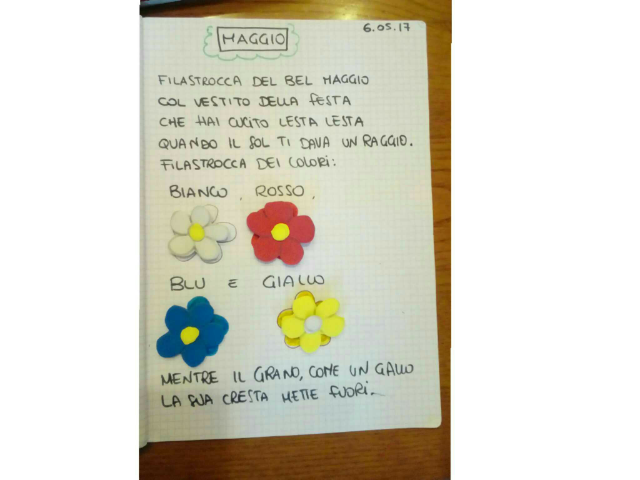 6.05.17
MAGGIO
FILASTROCCA DEL BEL MAGGIO
COL VESTITO DELLA FESTA
CHE HAI CUCITO LESTA LESTA
QUANDO IL SOL TI DAVA UN RAGGIO.
FILASTROCCA DEI COLORI:
BIANCO, ROSSO,
BLU E GIALLO
MENTRE IL GRANO, COME UN GALLO
LA SUA CRESTA METTE FUORI.